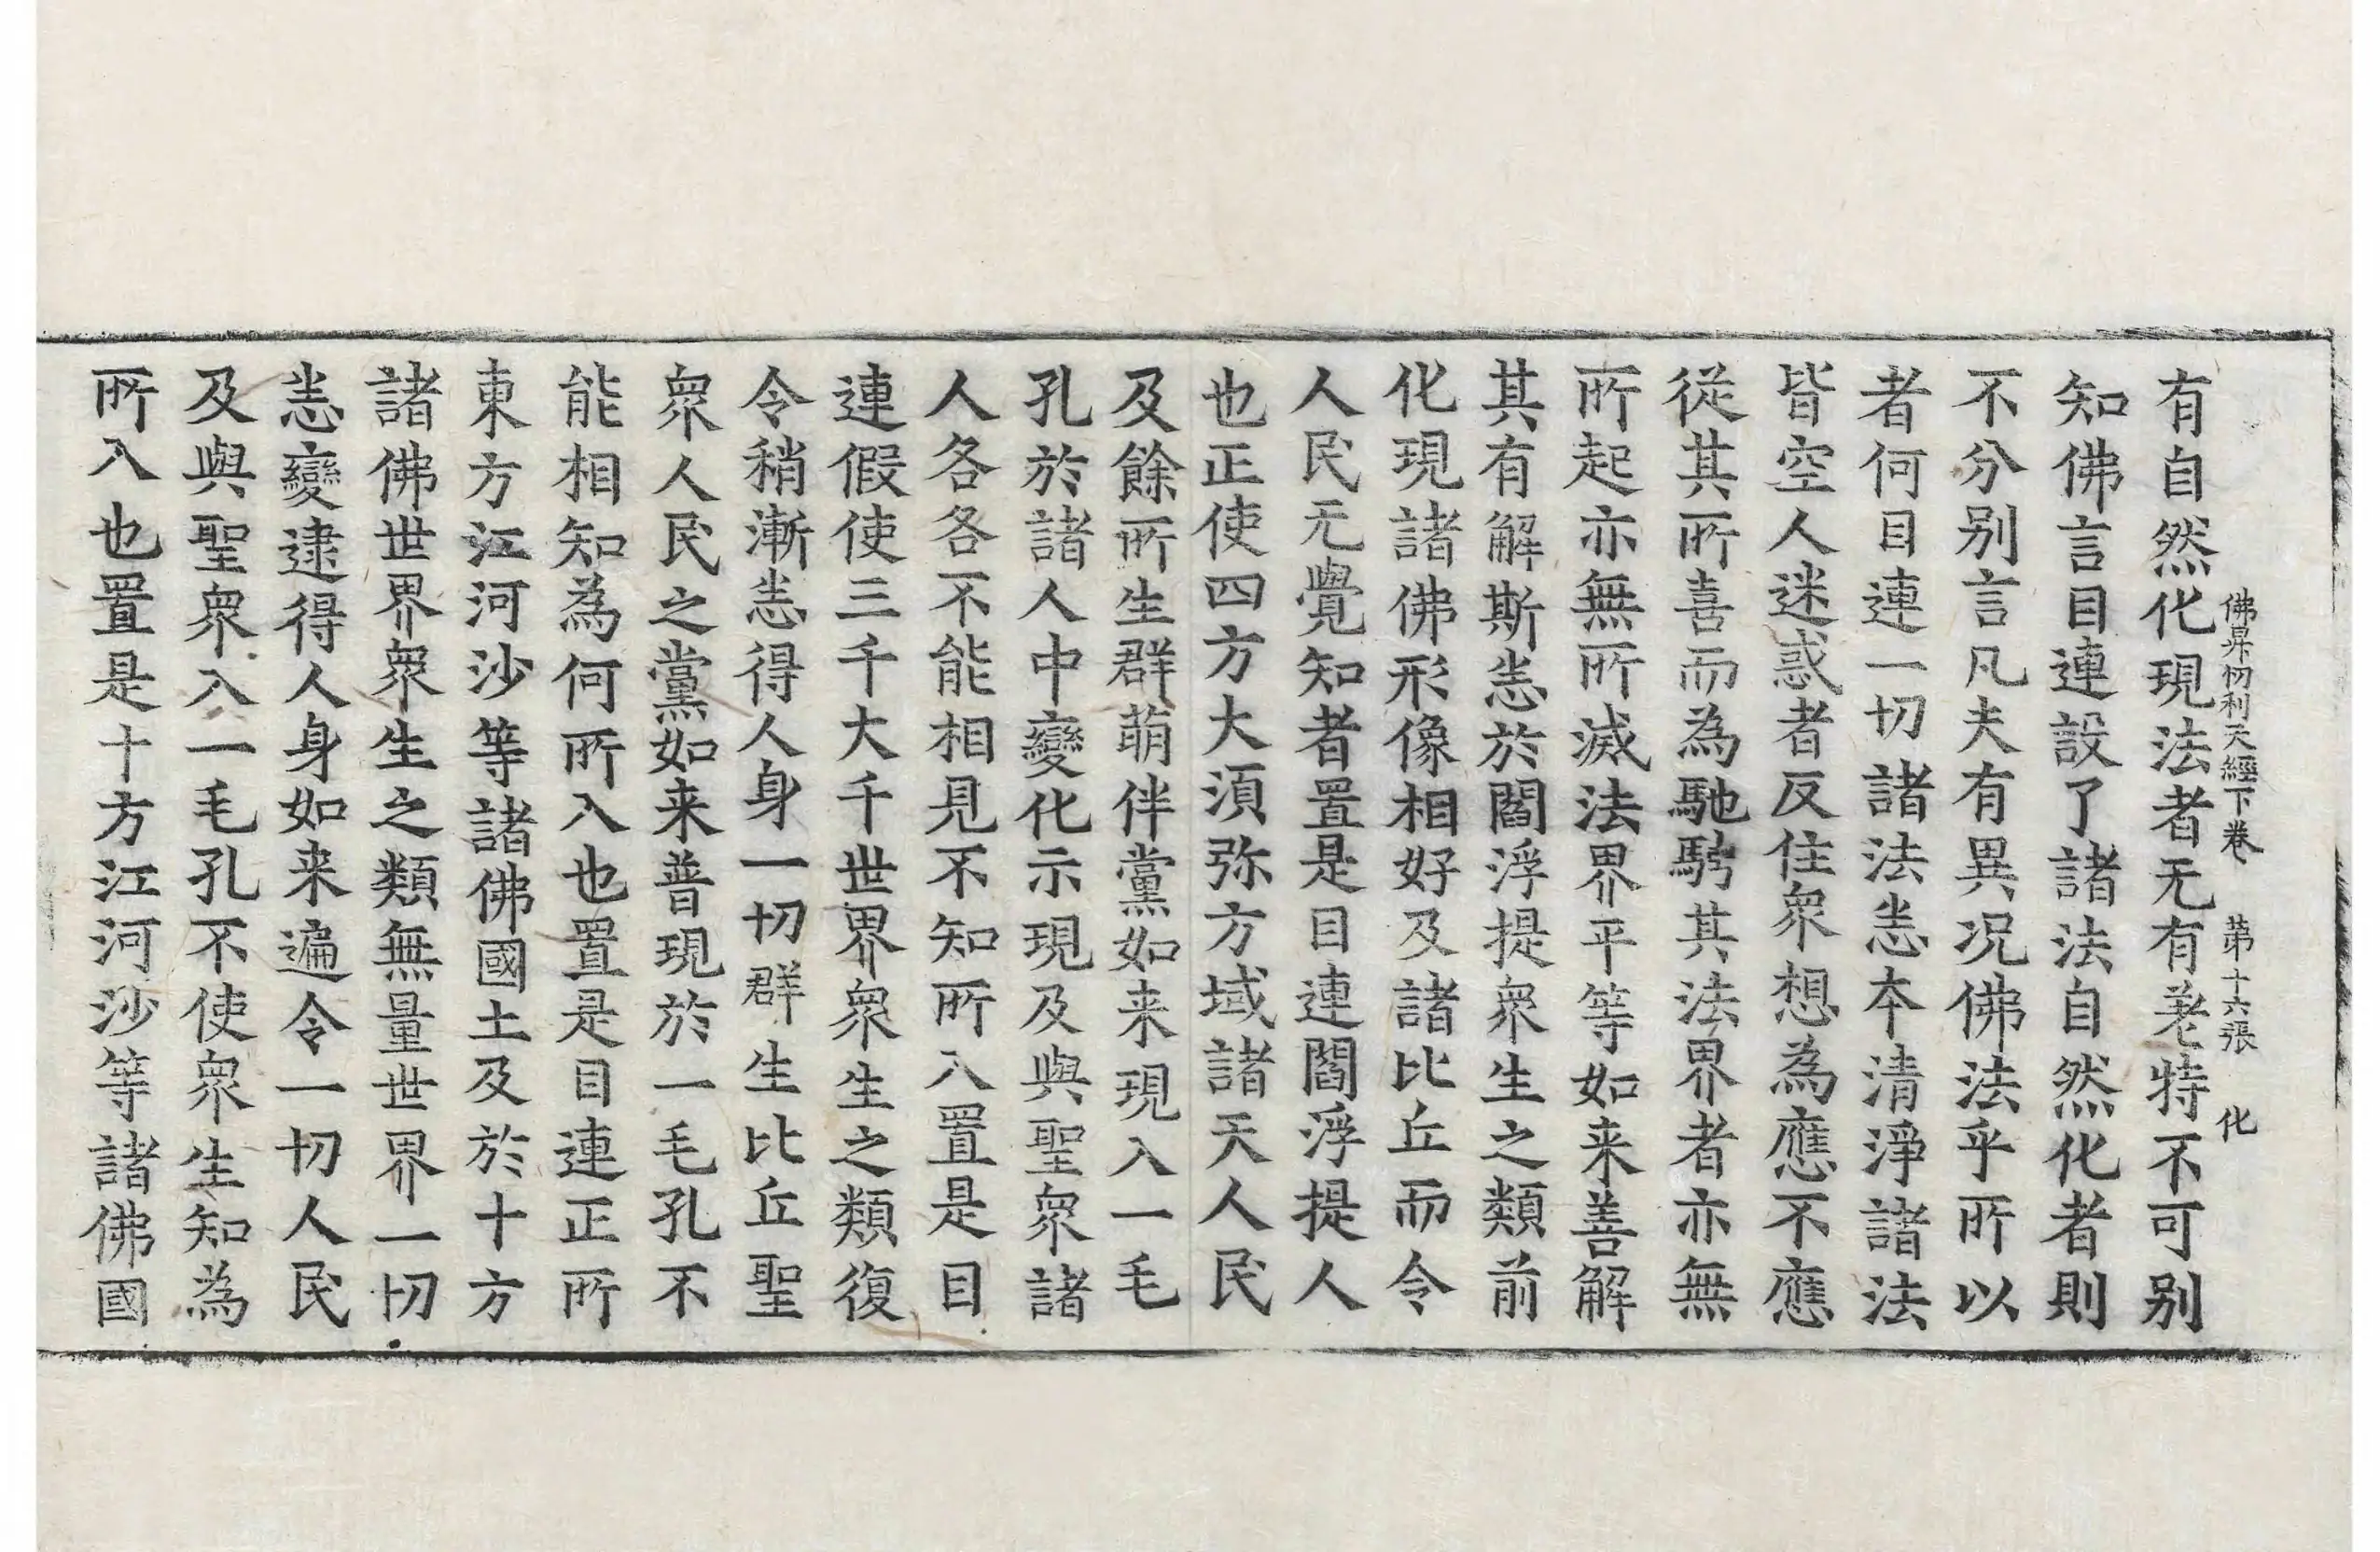 有自然化現法者无有差特不可別
佛昇忉利天經下卷　第十六張　化
知佛言目連設了諸法自然化者則
不分別言凡夫有異况佛法乎所以
者何目連一切諸法恙本清淨諸法
皆空人迷惑者反住衆想為應不應
從其所喜而為馳騁其法界者亦無
所起亦無所滅法界平等如来善解
其有解斯恙於閻浮提衆生之類前
化現諸佛形像相好及諸比丘而令
人民无覺知者置是目連閻浮提人
也正使四方大湏弥方域諸天人民
及餘所生群萌伴黨如来現入一毛
孔於諸人中變化示現及與聖衆諸
人各各不能相見不知所入置是目
連假使三千大千世界衆生之類復
令稍漸恙得人身一切群生比丘聖
衆人民之黨如来普現於一毛孔不
能相知為何所入也置是目連正所
東方江河沙等諸佛國土及於十方
諸佛世界衆生之類無量世界一切
恙變逮得人身如来遍令一切人民
及與聖衆入一毛孔不使衆生知為
所入也置是十方江河沙等諸佛國